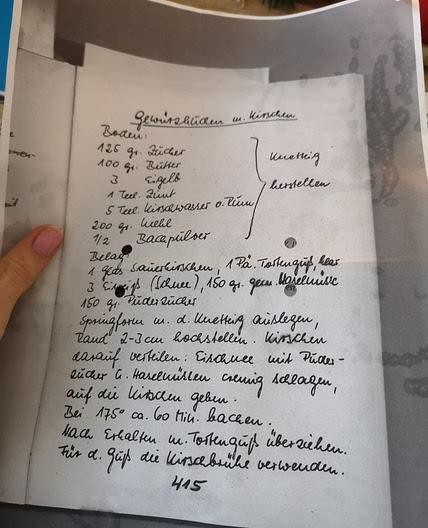 Gewürzkuchen m. Kirschen
Boden:
125 gr. Zucker
100 gr. Butter
3 Eigelb
1 Teel. Zimt
5 Teel. Kirschwasser o. Rum
200 gr. Mehl
1/2 Backpulver
Knetteig
herstellen
Belag:
1 Glas Sauerkirschen, 1 Pä. Tortenguß, klar
3 Eiweiß (Schnee), 150 gr. gem. Haselnüsse
150 gr. Puderzucker
Springform m. d. Knetteig auslegen,
Rand 2-3 cm hochstellen. Kirschen
darauf verteilen. Eischnee mit Puder-
zucker u. Haselnüssen cremig schlagen,
auf die Kirschen geben.
Bei 175° ca. 60 Min. backen.
Nach Erkalten m. Tortenguß überziehen.
Für d. Guß die Kirschbrühe verwenden.
415